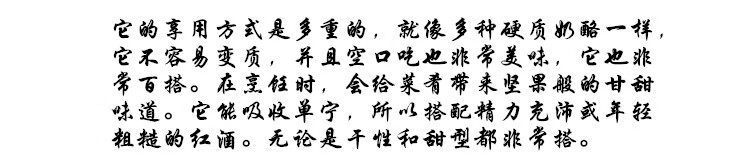 它的享用方式是多重的，就像多种硬质奶酪一样，
它不容易变质，并且空口吃也非常美味，它也非
常百搭。在烹饪时，会给菜肴带来坚果般的甘甜
味道。它能吸收单宁，所以搭配精力充沛或年轻
粗糙的红酒。无论是干性和甜型都非常搭。